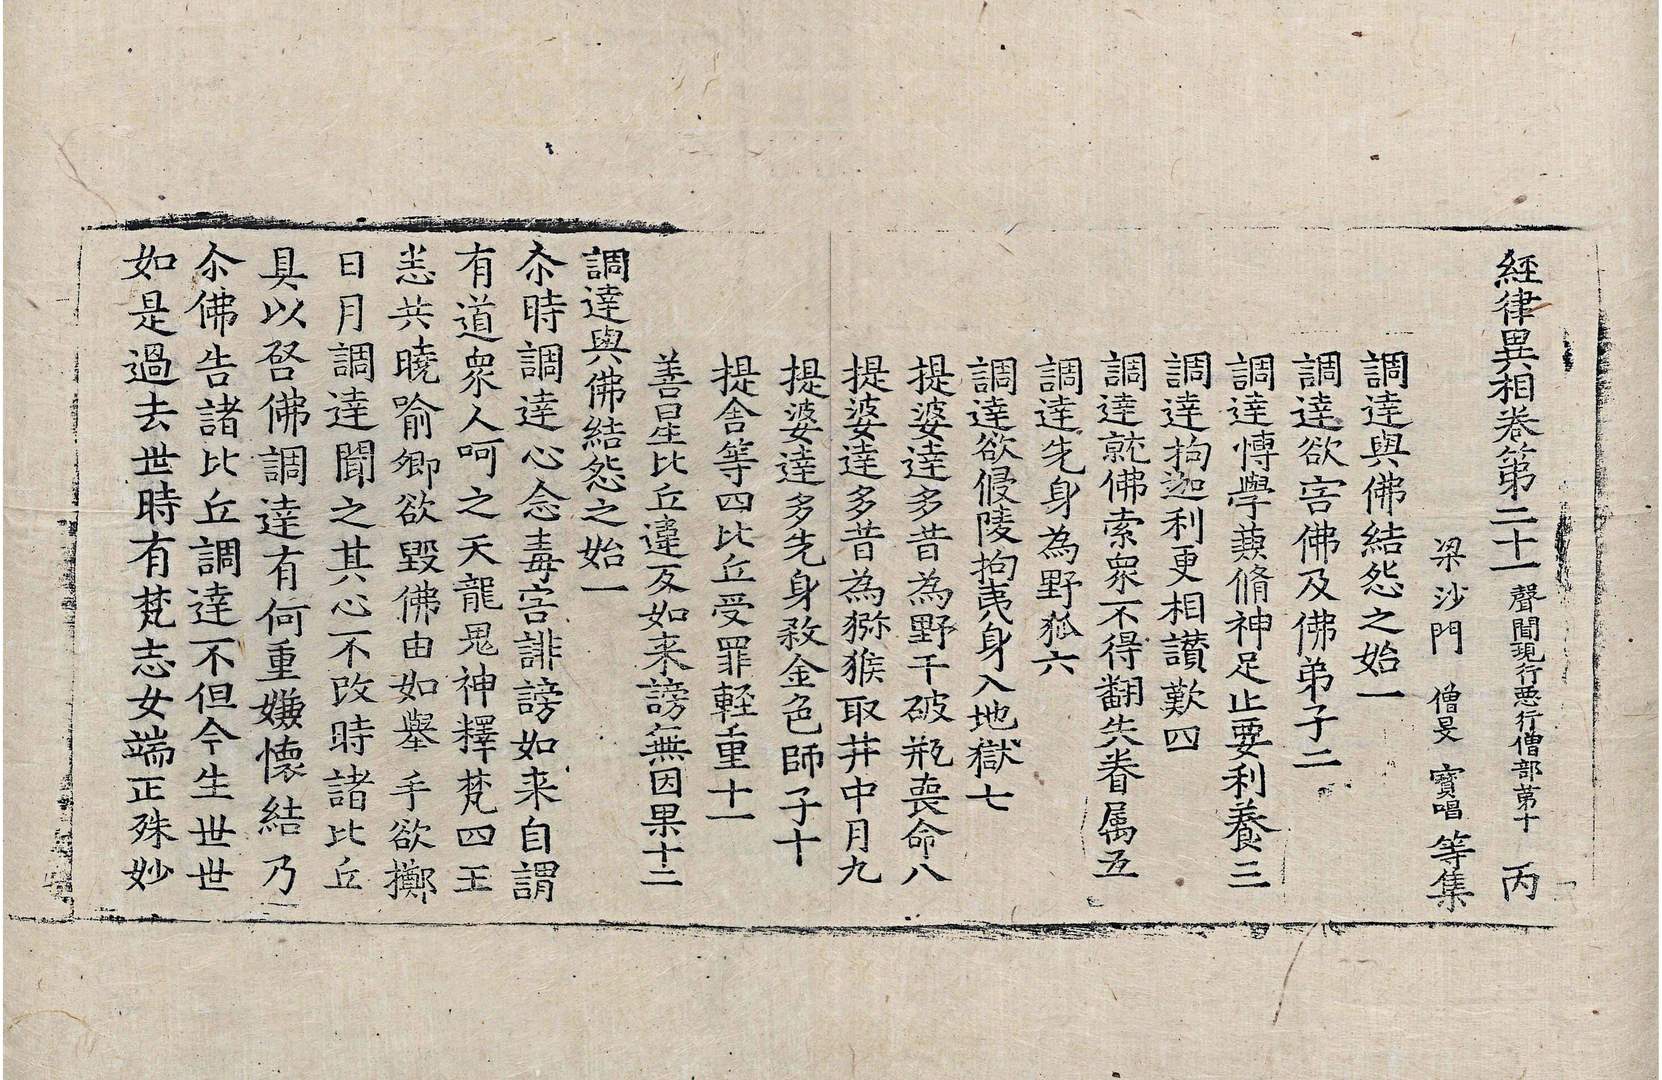 經律異相卷第二十一聲聞現行惡行僧部苐十 丙
梁沙門 僧旻 寶唱 等集
調達與佛結怨之始一
調達欲害佛及佛弟子二
調達慱學蒹脩神足止要利養三
調達拘迦利更相讃歎四
調達就佛索衆不得翻失眷属五
調達先身為野狐六
調達欲侵陵拘夷身入地獄七
提婆達多昔為野干破瓶喪命八
提婆達多昔為獼猴取井中月九
提婆達多先身殺金色師子十
提舍等四比丘受罪輕重十一
善星比丘違反如来謗無因果十二
調達與佛結怨之始一
尒時調達心念毒害誹謗如来自謂
有道衆人呵之天龍鬼神釋梵四王
悉共曉喻卿欲毀佛由如舉手欲擲
日月調達聞之其心不改時諸比丘
具以啓佛調達有何重嫌懐結乃
尒佛告諸比丘調達不但今生世世
如是過去世時有梵志女端正殊妙